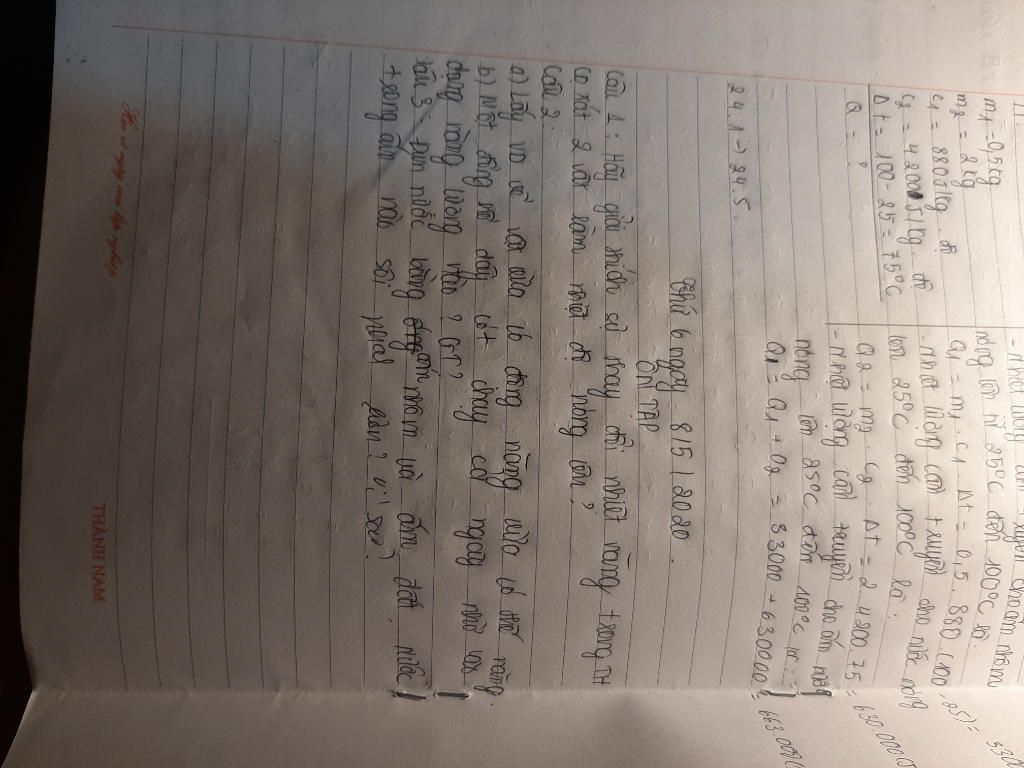 m1 = 0,5kg
m2 = 2 kg
c1 = 880J/kg.độ
c2 = 4200J/kg.độ
Δt = 100-25 = 75°C
Q = ?
nóng lên từ 25°C đến 100°C là:
Q1 = m1. c1. Δt = 0,5. 880 (100-25) =
- Nhiệt lượng cần truyền cho nước nóng
lên 25°C đến 100°C là:
Q2 = m2 c2. Δt = 2 4200.75 = 630.000
- Nhiệt lượng cần truyền cho ấm nước
nóng lên 25°C đến 100°C
Q = Q1 + Q2 = 33000 + 630000 = 663.000
24.1 -> 24.5.
Thứ 6 ngày 8/5/2020.
ÔN TẬP
Câu 1: Hãy giải thích sự thay đổi nhiệt năng trong TH
cọ xát 2 vật làm nhiệt độ nóng lên?
Câu 2:
a) Lấy vd về vật vừa có động năng vừa có thế năng.
b) Một ống có dây cót chạy cả ngày nhờ vào
dạng năng lượng nào? vì?
Câu 3: Đun nước bằng ấm nhôm và ấm đất
trong ấm nào sôi nhanh hơn? Vì sao?
Hoa ngàn
THANH NAM